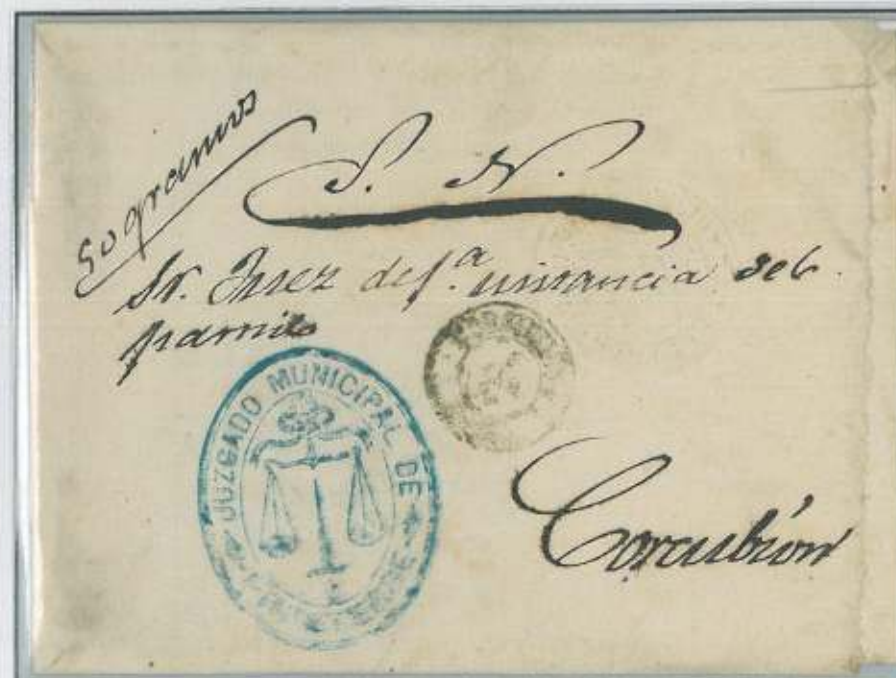 50 gramos
S. N.
Sr. Juez de 1.ª instancia del
partido
JUZGADO MUNICIPAL DE
Corcubión